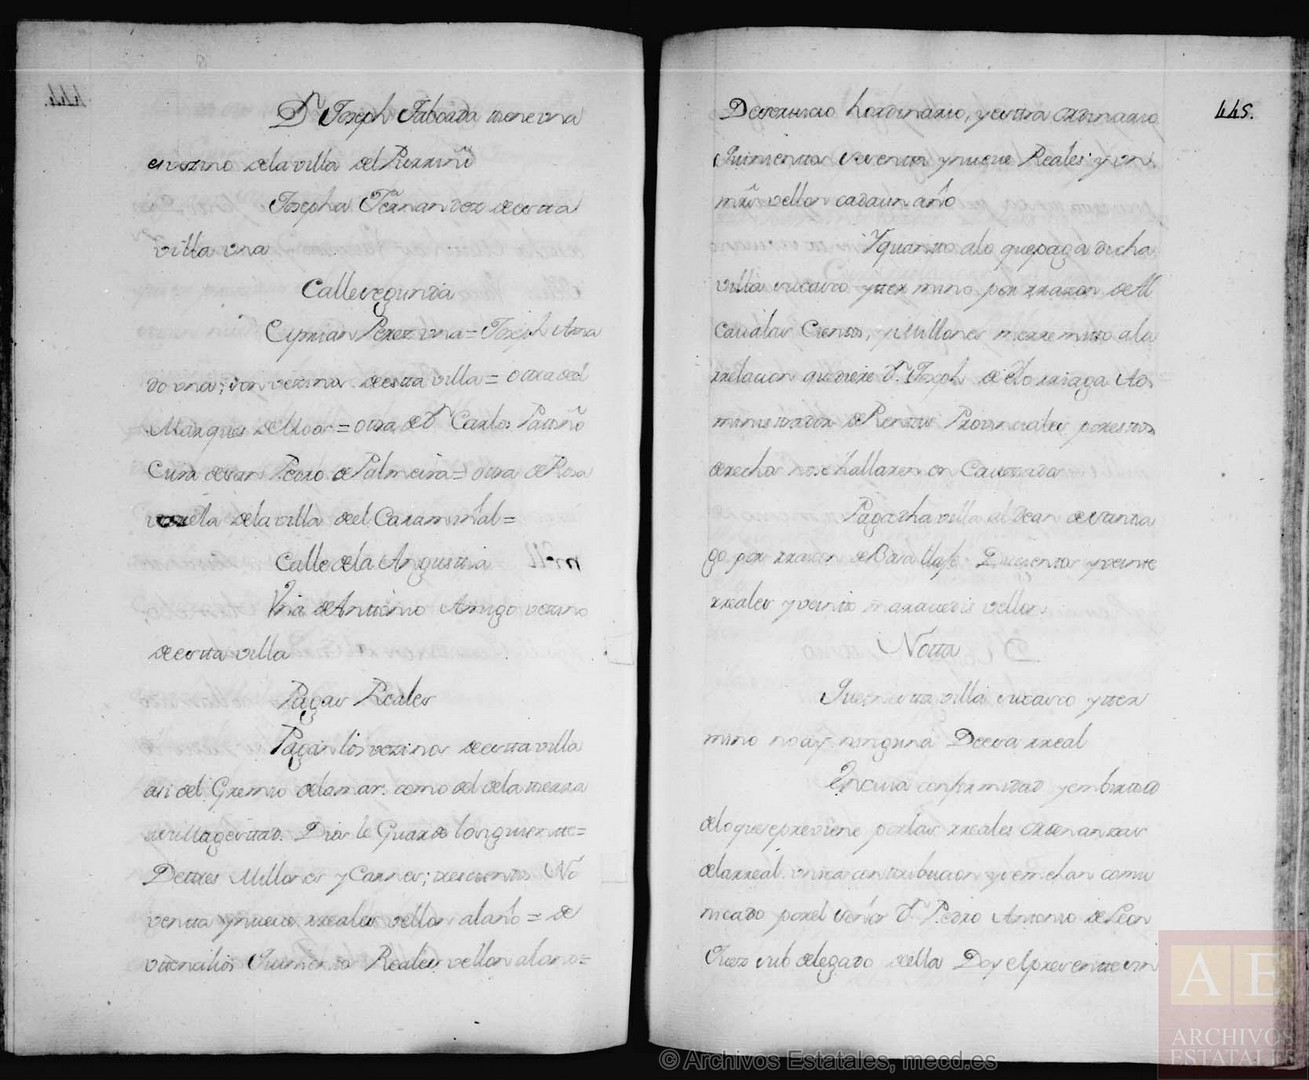 Dn Joseph Taboada tiene una
es vezino dela villa del Caramiñl
Josepha Fernandez de esta
villa una
Calle segunda
Ciprian Perez una = Joseph Ama
do una; son vezinos de esta villa = otra del
Marques de Moos = otra de Dn Carlos Patiño
Cura de san Pedro de Palmeira = otra de Rosa
dela villa del Caramiñal =
Calle dela Angustia
Una de Antonio Amigo vezino
de esta villa
Pagas Reales
Pagan los vezinos de esta villa
asi del Gremio dela mar como del dela tierra
a su Magestad Dios le Guarde lo siguiente =
Detres Millones y Carnes; trescientos No
venta y nueve rreales vellon al año = de
utencilios Quinientos Reales vellon al año =
445.
De servicio hordinario, y extra ordinario
Quinientos setenta y nueve Reales y un
mrs vellon cada un año
Y quanto alo que paga dicha
villa su casco y termino por rrazon de Al
cavalas Cientos, y Millones me rremito ala
rrelacion que diere Dn Joseph de Elorriaga Ad
ministrador de Rentas Provinciales por estos
derechos no se hallaren en Cavezada
Paga dha villa al Dean de Santia
go por rrazon de Docientos y veinte
rreales y veinte maravedis vellon
Notta
Que en esta villa su casco y ter
mino no ay ninguna Deesa rreal
En cuia conformidad y en birtud
delo que se previene por las rreales ordenanzas
dela rreal unica contribucion y exemplar comu
nicado por el señor Dn Pedro Antonio de Leon
Juez sub delegado de ella Doy el presente en
© Archivos Estatales, mecd.es
AE
ARCHIVOS
ESTATALES